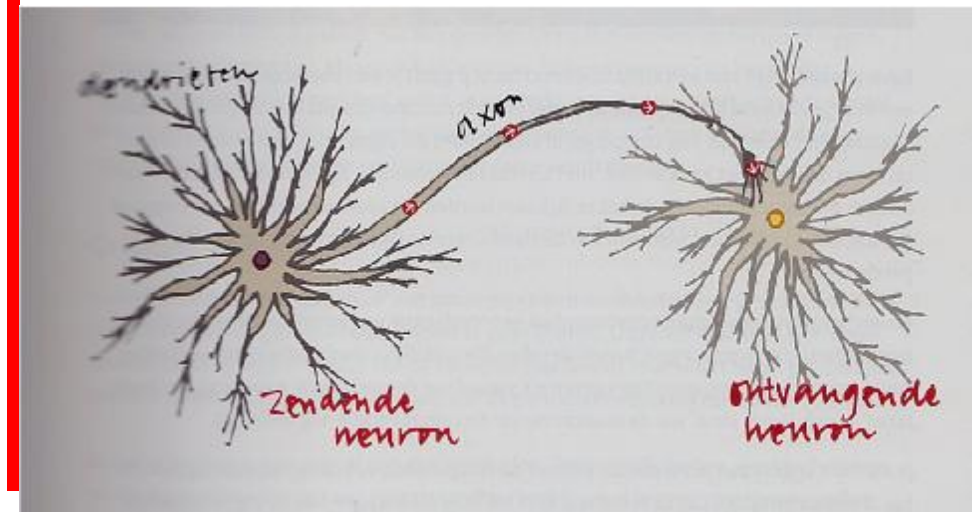 dendrieten
axon
zendende
neuron
ontvangende
neuron